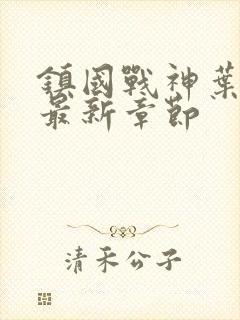 鎮國戰神葉
最新章節
清禾公子